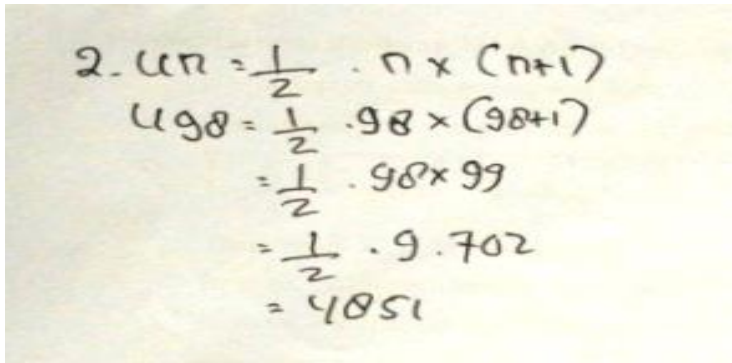 2. Un = 1/2 . n x (n+1)
U98 = 1/2 . 98 x (98+1)
= 1/2 . 98 x 99
= 1/2 . 9.702
= 4851